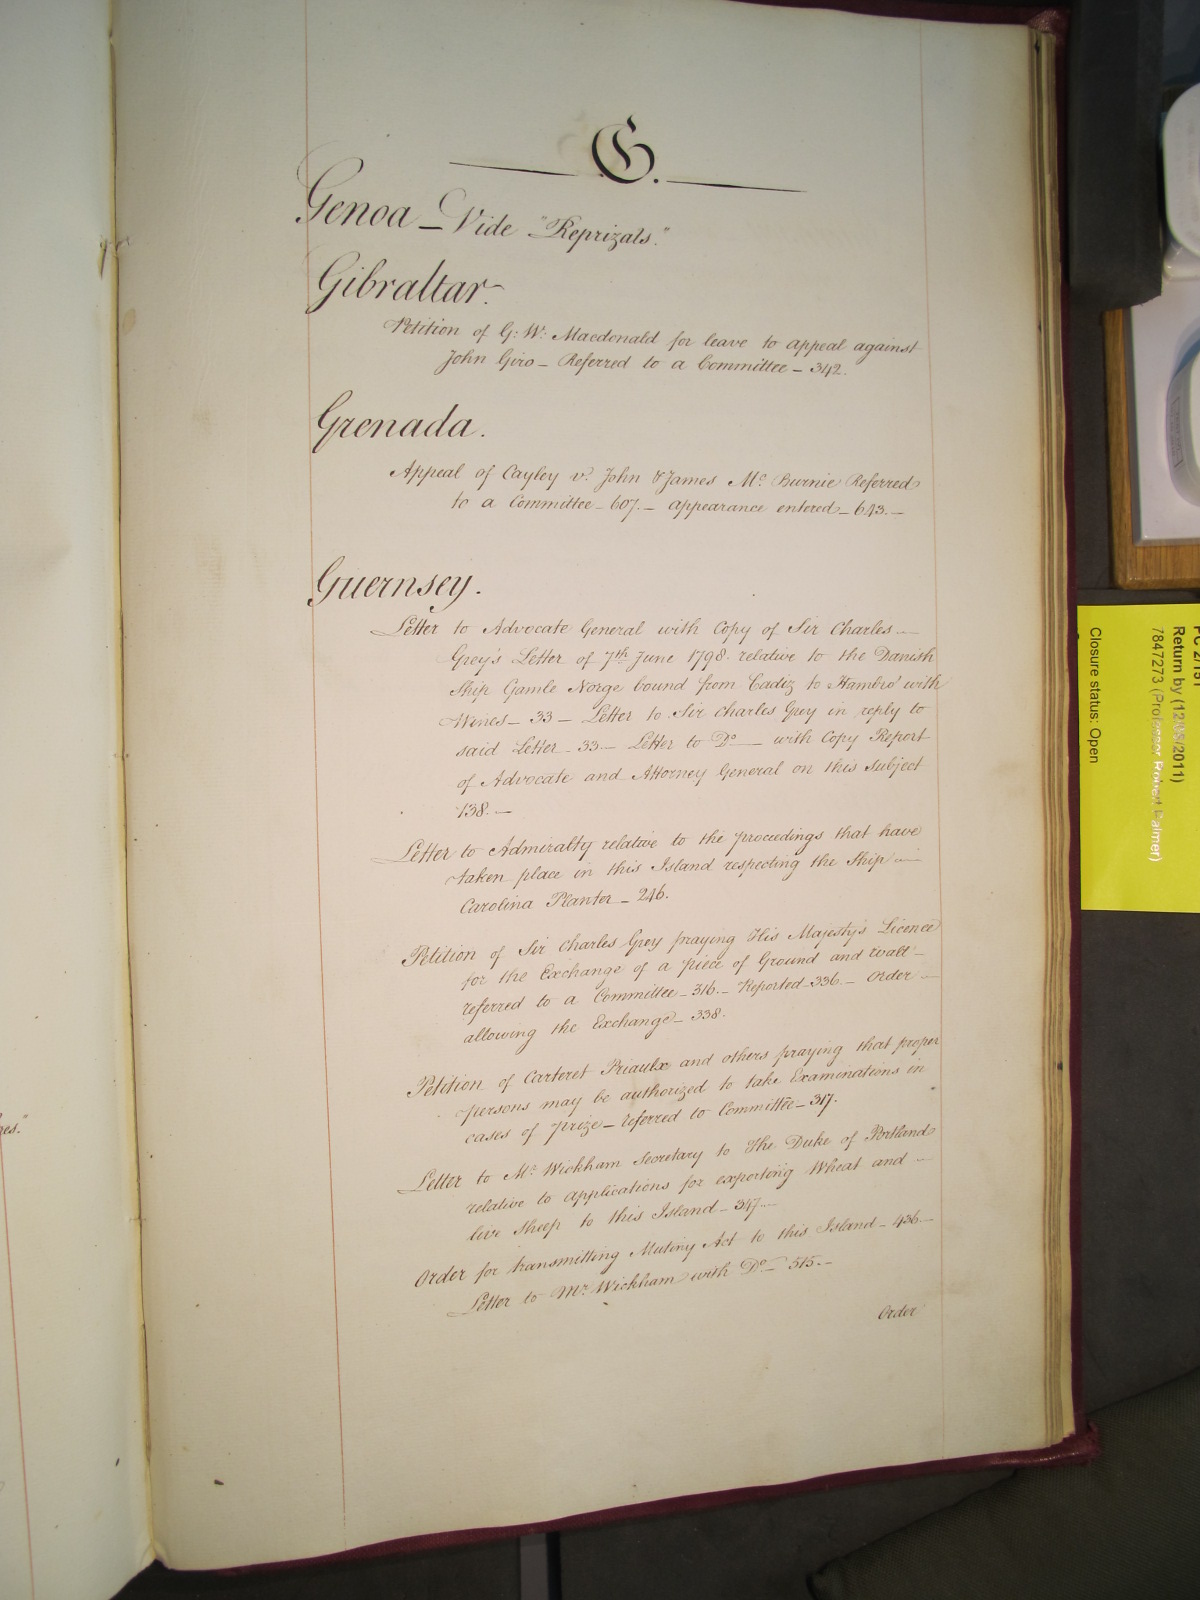 G.
Genoa – Vide "Reprizals."
Gibraltar.
Petition of G: W: Macdonald for leave to appeal against
John Giro – Referred to a Committee – 342.
Grenada.
Appeal of Cayley v. John & James Mc. Burnie Referred
to a Committee – 607. – appearance entered – 643. –
Guernsey.
Letter to Advocate General with Copy of Sir Charles –
Grey's Letter of 7th June 1798. relative to the Danish
Ship Gamle Norge bound from Cadiz to Hambro' with
Wines – 33 – Letter to Sir Charles Grey in reply to
said Letter – 33 – Letter to Do. — with Copy Report
of Advocate and Attorney General on this subject
138. –
Letter to Admiralty relative to the proceedings that have
taken place in this Island respecting the Ship –
Carolina Planter – 246.
Petition of Sir Charles Grey praying His Majesty's Licence
for the Exchange of a piece of Ground and Wall –
referred to a Committee – 316. – Reported – 336. – Order –
allowing the Exchange – 338.
Petition of Carteret Priaulx and others praying that proper
persons may be authorized to take Examinations in
cases of prize – referred to Committee – 317.
Letter to Mr. Wickham Secretary to The Duke of Portland
relative to applications for exporting Wheat and –
live Sheep to this Island – 347. –
Order for transmitting Mutiny Act to this Island – 436. –
Letter to Mr. Wickham with Do. – 515. –
Order
PC 2/151
Return by (12/08/2011)
7847273 (Professor Robert Palmer)
Closure status: Open